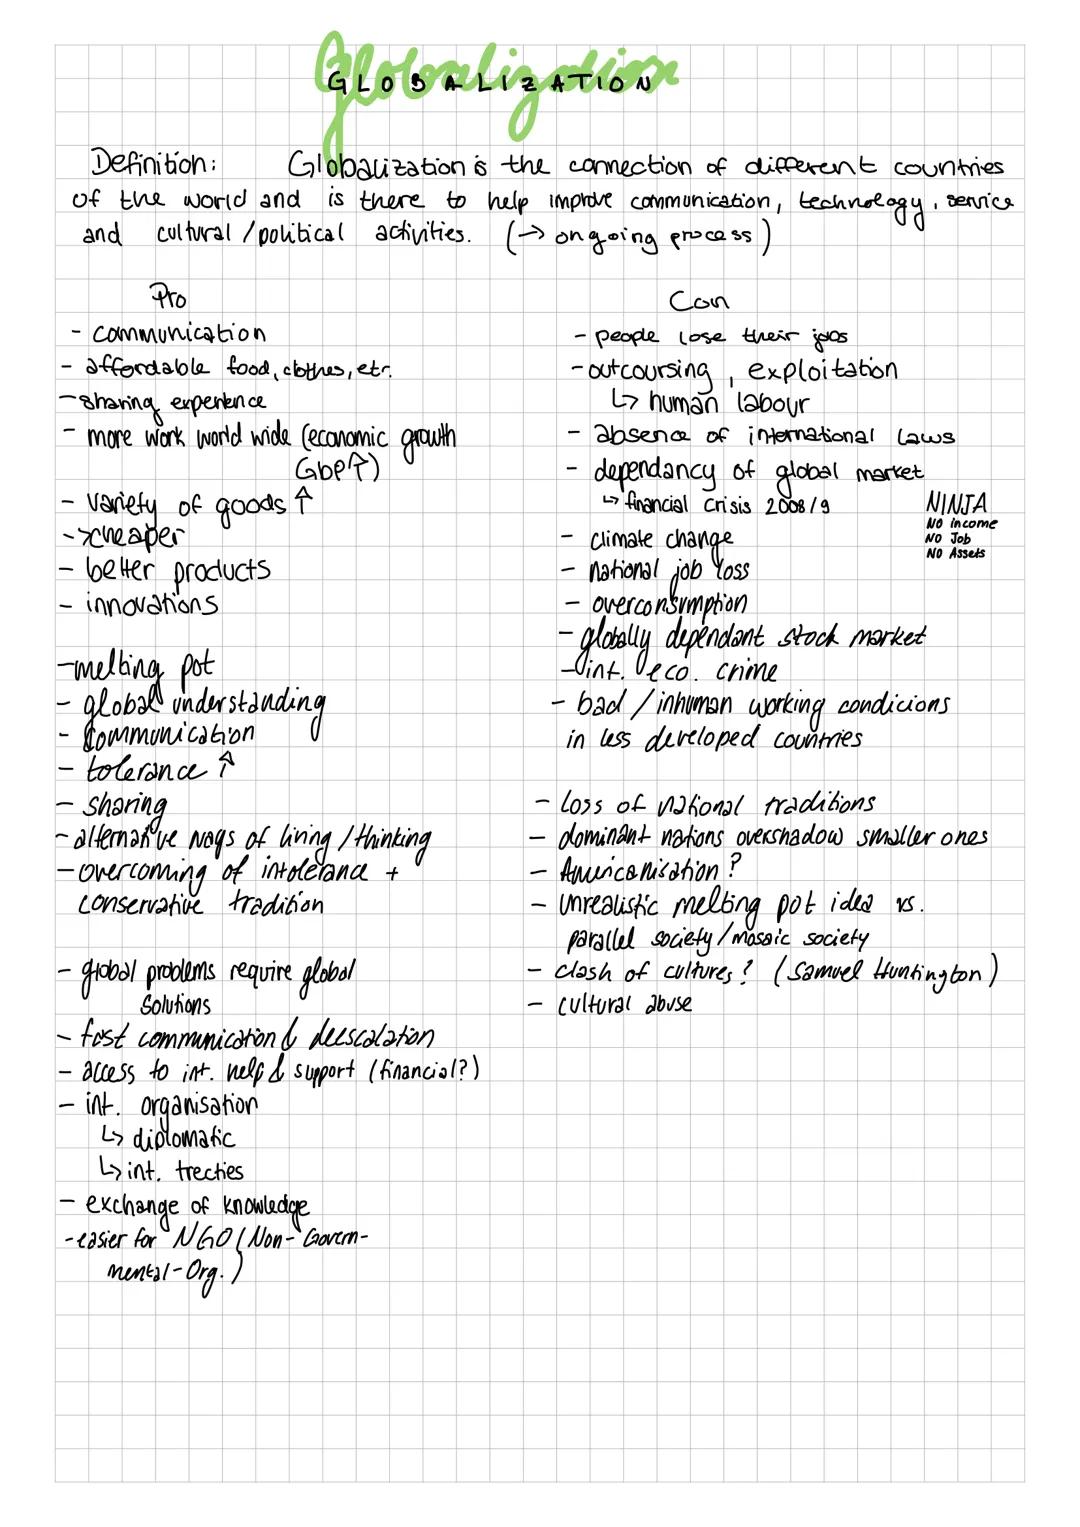 Globalization
GLOBALIZATION
Definition: Globalization is the connection of different countries
of the world and is there to help improve communication, technology, service
and cultural/political activities. (→ ongoing process)
Pro
- communication
- affordable food, clothes, etc.
- sharing experience
- more work world wide (economic growth
GDP↑)
- variety of goods ↑
-→cheaper
- better products
- innovations
- melting pot
- global understanding
- communication
- tolerance ↑
- sharing
- alternative ways of living/thinking
- overcoming of intolerance +
conservative tradition
- global problems require global
solutions
- fast communication & deescalation
- access to int. help & support (financial?)
- int. organisation
↳ diplomatic
↳ int. trecties
- exchange of knowledge
- easier for NGO (Non-Govern-
mental-Org.)
Con
- people lose their jobs
- outcoursing, exploitation
↳ human labour
- absence of international laws
- dependancy of global market
↳ financial crisis 2008/9
NINJA
NO income
NO Job
NO Assets
- climate change
- national job loss
- overconsumption
- globally dependant stock market
- int. eco. crime
- bad/inhuman working condicions
in less developed countries
- loss of national traditions
- dominant nations overshadow smaller ones
- Americanisation?
- unrealistic melting pot idea vs.
parallel society/mosaic society
- clash of cultures? (Samuel Huntington)
- cultural abuse